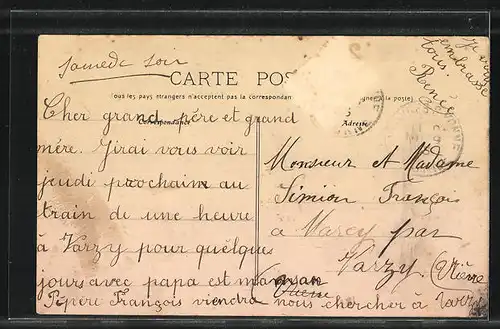 Samedi soir
Je vous
embrasse
tous.
Renée
CARTE POS
Tous les pays étrangers n'acceptent pas la correspondan
à la poste)
Correspondance
Adresse
Cher grand père et grand
mère. J'irai vous voir
jeudi prochain au
train de une heure
à Varzy pour quelques
jours avec papa est maman
Pépère François viendra nous chercher à Varzy
Monsieur et Madame
Simion François
à Marcy par
Varzy (Nièvre